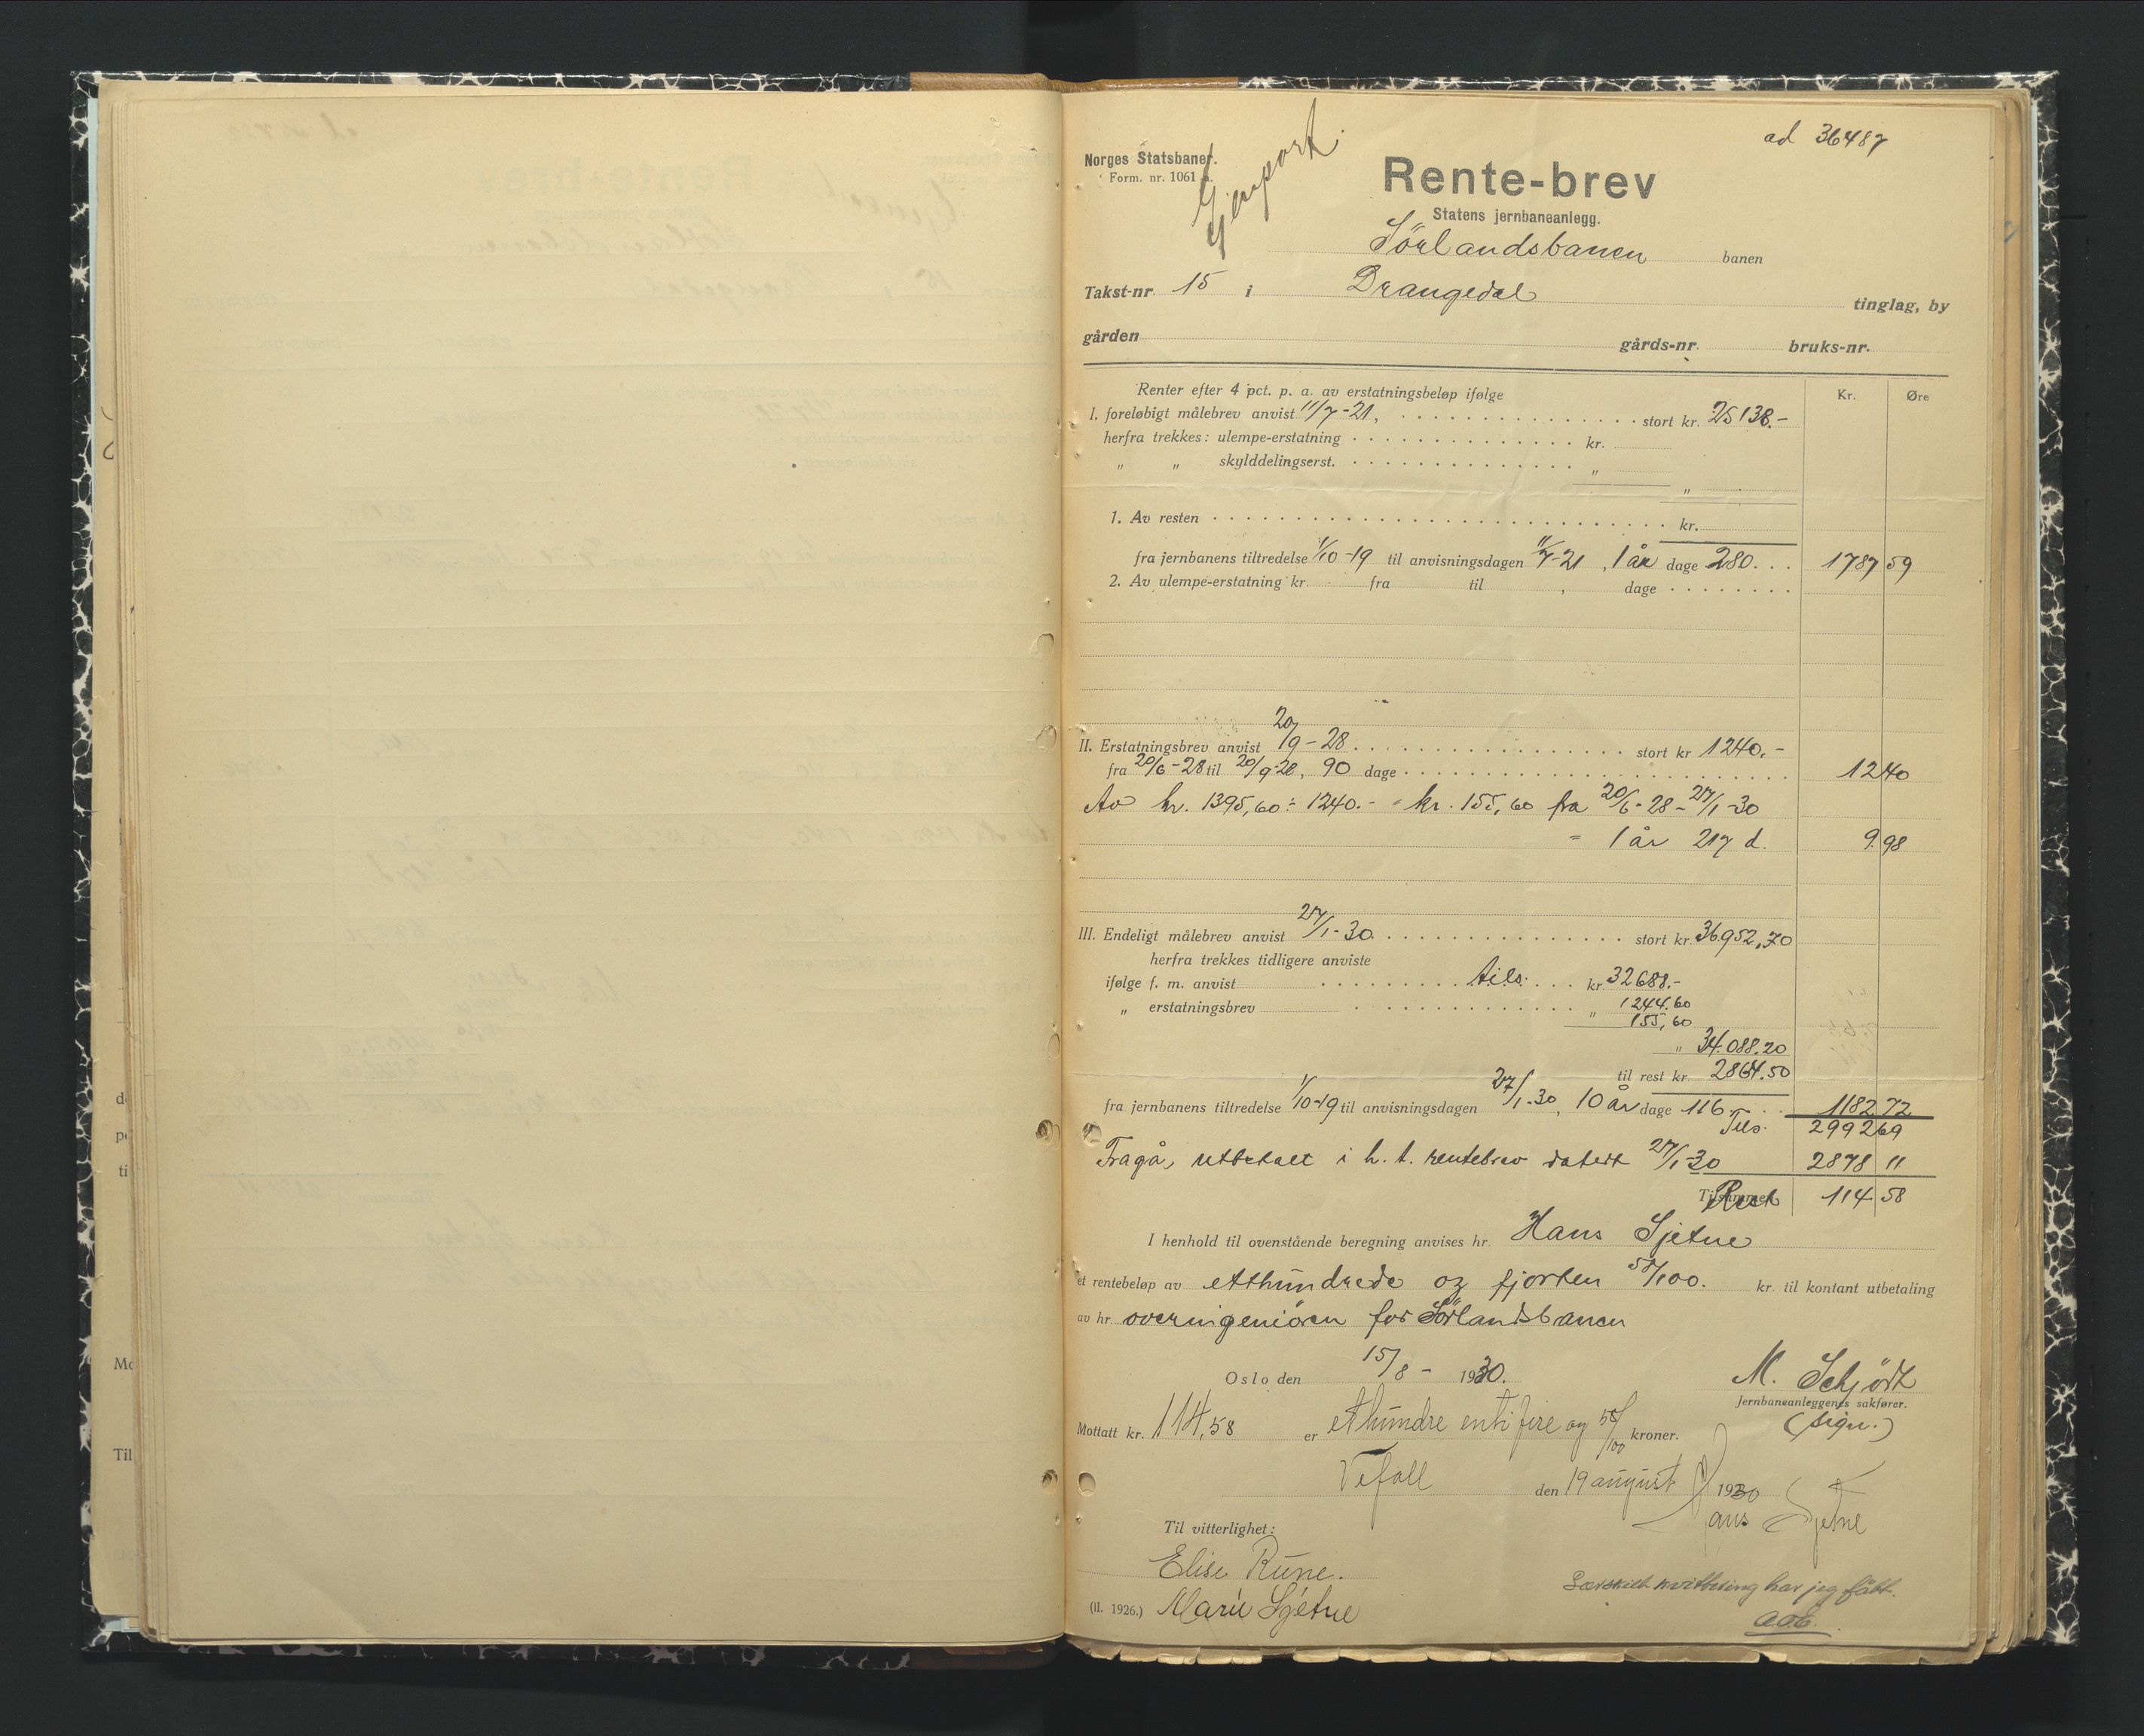 ad 36487
Norges Statsbaner.
Form. nr. 1061 a.
Gjenpart.
Rente-brev
Statens jernbaneanlegg.
Sörlandsbanen banen
Takst-nr. 15 i Drangedal tinglag, by
gården gårds-nr. bruks-nr.
Renter efter 4 pct. p. a. av erstatningsbeløp ifølge Kr. Øre
I. foreløbigt målebrev anvist 11/7-21, stort kr. 25138.-
herfra trekkes: ulempe-erstatning kr.
" " skylddelingserst. "
"
1. Av resten kr.
fra jernbanens tiltredelse 1/10-19 til anvisningsdagen 11/7-21, 1 år dage 280. 1787 59
2. Av ulempe-erstatning kr. fra til , dage
II. Erstatningsbrev anvist 20/9-28 stort kr 1240.-
fra 20/6-28 til 20/9-28, 90 dage 12 40
Av kr. 1395,60 ÷ 1240.- = kr. 155,60 fra 20/6-28 - 27/1-30
= 1 år 217 d. 9.98
III. Endeligt målebrev anvist 27/1-30 stort kr. 36952,70
herfra trekkes tidligere anviste
ifølge f. m. anvist tils. kr 32688.-
" erstatningsbrev " 1244.60
155,60
" 34.088.20
til rest kr. 2864.50
fra jernbanens tiltredelse 1/10-19 til anvisningsdagen 27/1-30, 10 år dage 116 1182 72
Tils. 2992 69
Fragå, utbetalt i h. t. rentebrev datert 27/1-30 2878 11
Tilsammen Rest 114 58
I henhold til ovenstående beregning anvises hr. Hans Sjetne
et rentebeløp av etthundrede og fjorten 58/100. kr. til kontant utbetaling
av hr. overingeniören for Sörlandsbanen
Oslo den 15/8 - 1930.
M. Schjödt
Jernbaneanleggenes sakfører.
(sign.)
Mottatt kr. 114,58 er ethundre enti fire og 58/100 kroner.
Vefall den 19 august 1930
Hans Sjetne
Til vitterlighet:
Elise Rune.
Marie Sjetne
Særskilt kvittering har jeg fått.
AOE.
(II. 1926.)